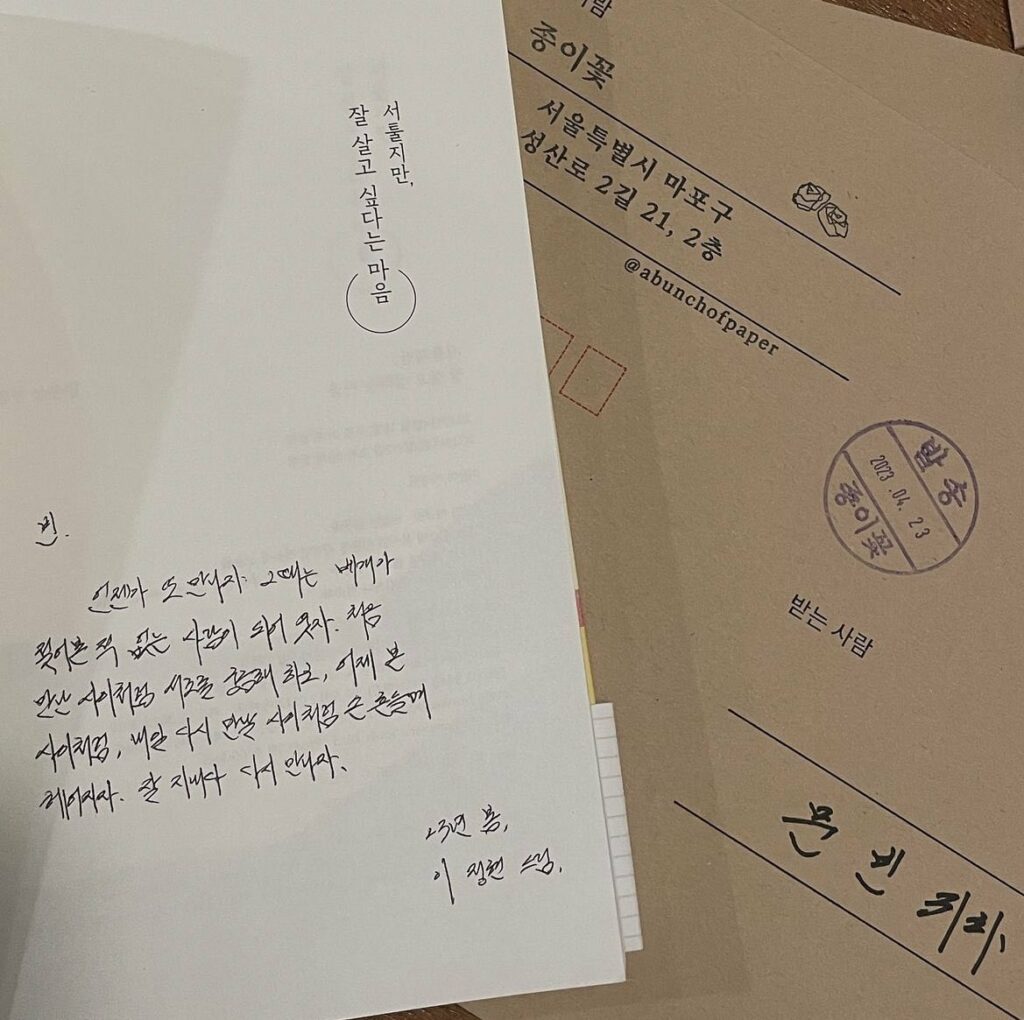 서툴지만,
잘 살고 싶다는 마음
빈.
언젠가 또 만나자. 그때는 베개가
젖어본 적 없는 사람이 되어 있자. 처음
만난 사이처럼 서로를 궁금해 하고, 어제 본
사이처럼, 내일 다시 만날 사이처럼 손 흔들며
헤어지자. 잘 지내다 다시 만나자.
23년 봄,
이 정현 드림.
종이꽃
서울특별시 마포구
성산로 2길 21, 2층
@abunchofpaper
발송
2023.04.23
종이꽃
받는 사람
문 빈 귀하